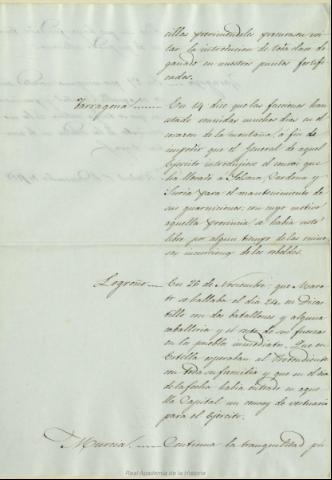 cillas previniendoles procurasen evi-
tar la introduccion de toda clase de
ganado en nuestros puntos fortifi-
cados.
Tarragona. En 14 dice que las facciones han
estado reunidas muchos dias en el
corazon de la montaña, á fin de
impedir que el General de aquel
Egercito introdugese el convoy que
ha llevado á Solsona, Cardona y
Suria para el mantenimiento de
sus guarniciones, con cuyo motivo
aquella provincia se habia visto
libre por algun tiempo de las
incursiones de los rebeldes.
Logroño. En 26 de Noviembre: que Maro-
to se hallaba el dia 24 en Dicas-
tillo con dos batallones y alguna
caballeria y el resto de sus fuerzas
en los pueblos inmediatos. Que en
Estella esperaban al Pretendiente
con toda su familia y que en el dia
de la fecha habia entrado en aque-
lla Capital un convoy de vestuario
para el Egercito.
Murcia. Continua la tranquilidad pú
Real Academia de la Historia